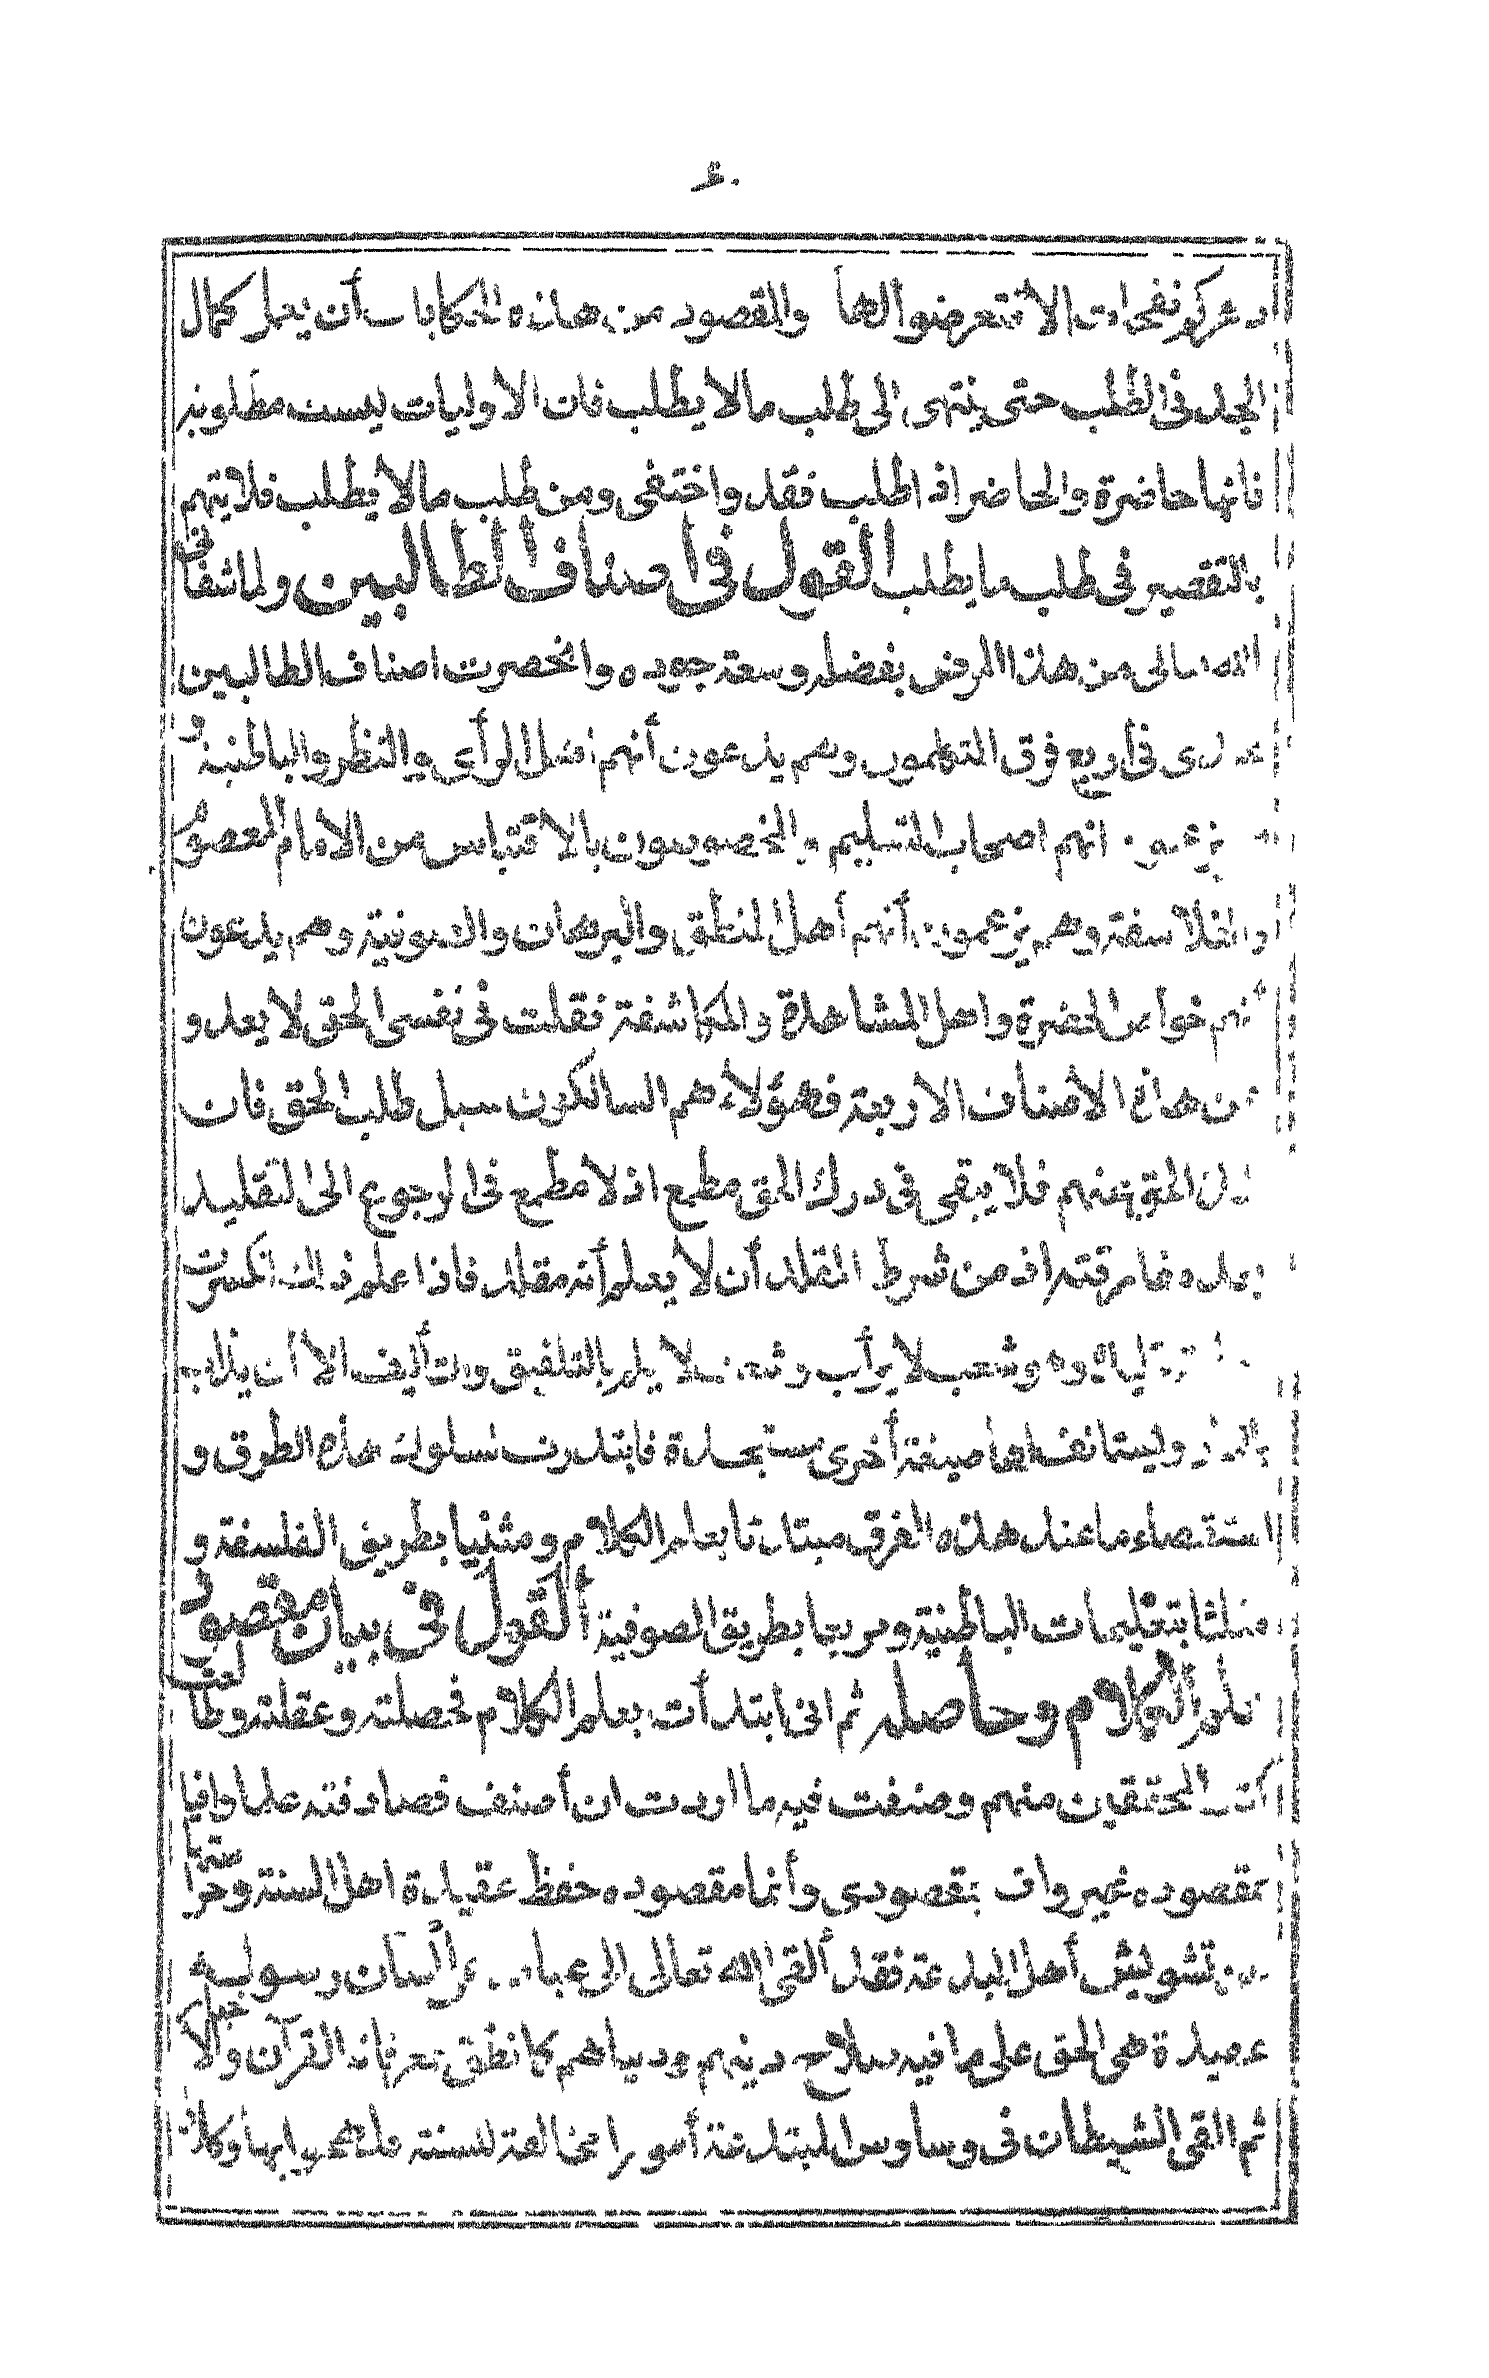 ٤٠
دهركم نفحات الا فتعرضوا لها والمقصود من هذه الحكايات أن يعمل كمال
الجد فى الطلب حتى ينتهى الى طلب ما لا يطلب فان الاوليات ليست مطلوبة
فانها حاضرة والحاضر اذ اطلب فقد واختفى ومن طلب ما لا يطلب فلا يتهم
بالتقصير فى طلب ما يطلب القول فى اصناف الطالبين ولما شفانى
الله تعالى من هذا المرض بفضله وسعة جوده وانحصرت اصناف الطالبين
عندى فى أربع فرق المتكلمون وهم يدعون أنهم اهل الرأى والنظر والباطنية و
يزعمون انهم اصحاب التسليم والمخصوصون بالاقتباس من الامام المعصوم
والفلاسفة وهم يزعمون أنهم أهل المنطق والبرهان والصوفية وهم يدعون
أنهم خواص الحضرة واهل المشاهدة والمكاشفة فقلت فى نفسى الحق لا يعدو
من هذه الاصناف الاربعة فهؤلاء هم السالكون سبل طلب الحق فان
الحق عنهم فلا يبقى فى درك الحق مطمع اذ لا مطمع فى الرجوع الى التقليد
بعد مفارقته اذ من شرط المقلد أن لا يعلم أنه مقلد فاذا علم ذلك انكسرت
تقليده وهو شعب لا يرأب وشعث لا يلم بالتلفيق والتأليف الا أن يذاب
بالنار وليستانف لها صيغة أخرى مستجدة فابتدرت لسلوك هذه الطرق و
استقصاء ما عند هذه الفرق مبتدئا بعلم الكلام ومثنيا بطريق الفلسفة و
مثلثا بتعليمات الباطنية ومربعا بطريق الصوفية القول فى بيان مقصود
علم الكلام وحاصله ثم انى ابتدأت بعلم الكلام فحصلته وعقلته وطالعت
كتب المحققين منهم وصنفت فيه ما اردت ان أصنف فصادفته علما وافيا
بمقصوده غير واف بمقصودى وأنما مقصوده حفظ عقيدة اهل السنة وحراستها
من تشويش أهل البدعة فقد ألقى الله تعالى الى عباده على لسان رسوله
عقيدة هى الحق على ما فيه صلاح دينهم ودنياهم كما نطق بمعرفاته القرآن والاخبار
ثم القى الشيطان فى وساوس المبتدعة أمورا مخالفة للسنة فلهجوا بها وكادوا